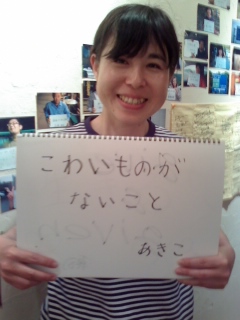 こわいものが
ないこと
あきこ